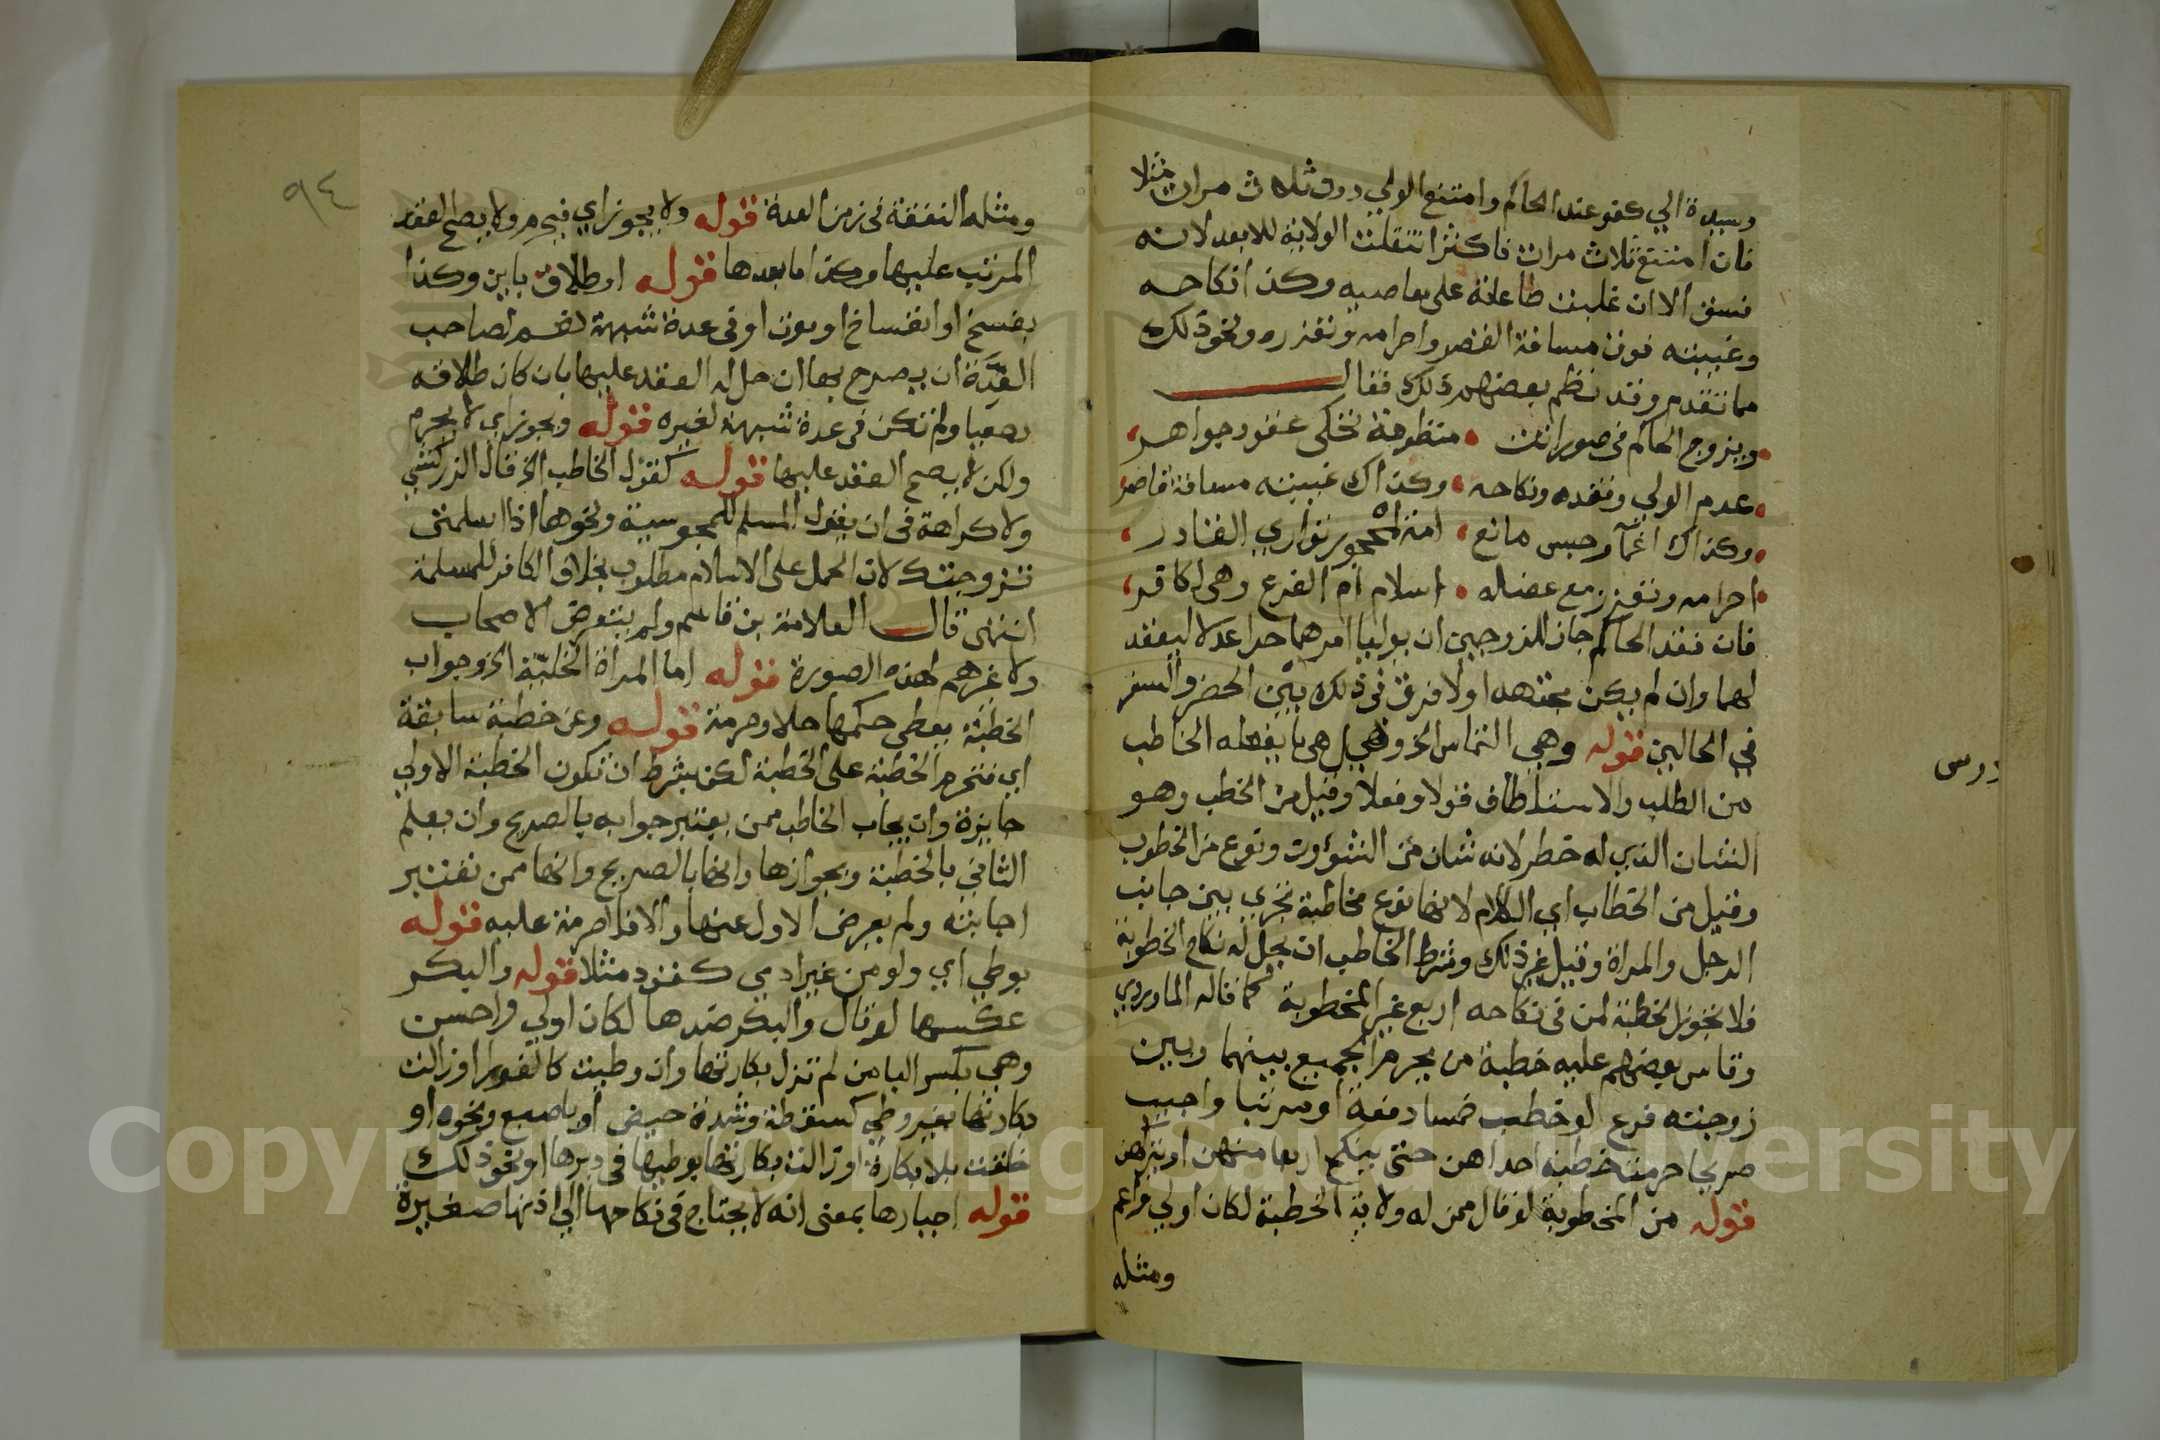 وسيدة الي كفو عند الحاكم وامتنع الولي دون ثلاث مرات مثلا
فان امتنع ثلاث مرات فاكثر انتقلت الولاية للابعد لانه
فسق الا ان غلبت طاعاته على معاصيه وكذا انكاحه
وغيبته فوق مسافة القصر واحرامه وتعزره ونحو ذلك
مما تقدم وقد نظم بعضهم ذلك فقال
ويزوج الحاكم في صور اتت منظومة تحكى عقود جواهر
عدم الولي وفقده ونكاحه وكذاك غيبته مسافة قاصر
وكذاك اغماء وحبس مانع امة لمحجور تواري القادر
احرامه وتعزز مع عضله اسلام ام الفرع وهي لكافر
فان فقد الحاكم جاز للزوجين ان يوليا امرهما حرا عدلا ليعقد
لهما وان لم يكن مجتهدا ولا فرق في ذلك بين الحضر والسفر
في الحالين قوله وهي التماس الخ وقيل هي ما يفعله الخاطب
من الطلب والاستلطاف قولا وفعلا وقيل من الخطب وهو
الشان الذي له خطر لانه شان من الشؤون ونوع من الخطوب
وقيل من الخطاب اي الكلام لانها نوع مخاطبة تجري بين جانب
الرجل والمراة وقيل غير ذلك وشرط الخاطب ان يحل له نكاح المخطوبة
فلا تجوز الخطبة لمن في نكاحه اربع غير المخطوبة كما قاله الماوردي
وقاس بعضهم عليه خطبة من يحرم الجمع بينهما وبين
زوجته فرع لو خطب خمسا دفعة او مرتبا واجيب
صريحا حرمت خطبة احداهن حتى ينكح اربعا منهن او يتركهن
قوله من المخطوبة لو قال ممن له ولاية الخطبة لكان اولي واعم
ومثله
درس
٩٤
ومثله النفقة في زمن العدة قوله ولا يجوز اي فيحرم ولا يصح العقد
المرتب عليها وكذا ما بعدها قوله او طلاق باين وكذا
بفسخ او انفساخ او موت او في عدة شبهة نعم لصاحب
العدة ان يصرح بها ان حل له العقد عليها بان كان طلاقه
رجعيا ولم تكن في عدة شبهة لغيره قوله ويجوز اي لا يحرم
ولكن لا يصح العقد عليها قوله كقول الخاطب الخ قال الزركشي
ولا كراهة في ان يقول المسلم للمجوسية ونحوها اذا اسلمتي
تزوجتك لان الحمل على الاسلام مطلوب بخلاف الكافر للمسلمة
انتهى قال العلامة بن قاسم ولم يتعرض الاصحاب
ولا غيرهم لهذه الصورة قوله اما المراة الخلية الخ وجواب
الخطبة يعطى حكمها حلا وحرمة قوله وعن خطبة سابقة
اي فتحرم الخطبة على الخطبة لكن بشرط ان تكون الخطبة الاولي
جايزة وان يجاب الخاطب ممن يعتبر جوابه بالصريح وان يعلم
الثاني بالخطبة وبجوازها وانها بالصريح وانها ممن تعتبر
اجابته ولم يعرض الاول عنها والا فلا حرمة عليه قوله
بوطي اي ولو من غير ادمي كقرد مثلا قوله والبكر
عكسها لو قال والبكر ضدها لكان اولي واحسن
وهي بكسر البا من لم تزل بكارتها وان وطيت كالغورا او زالت
بكارتها بغير وطي كسقطة وشدة حيض او باصبع ونحوه او
خلقت بلا بكارة او زالت بكارتها بوطيها في دبرها او نحو ذلك
قوله اجبارها بمعنى انه لا يحتاج في نكاحها الي اذنها صغيرة
Copyright © King Saud University